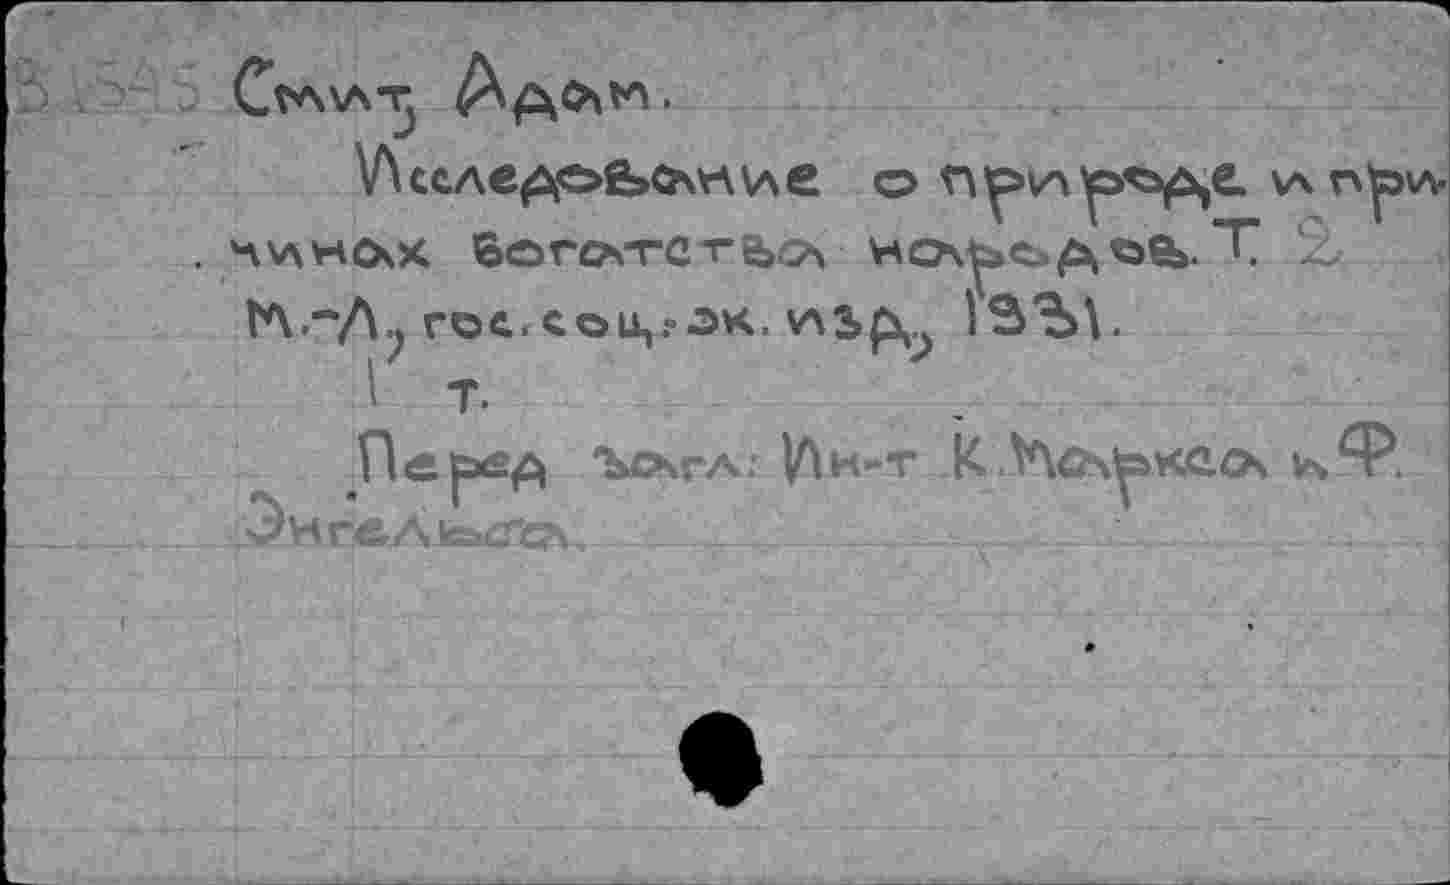 Смит, Адам.
Исследование о природе и при-
чинах богатства народов. Т. 2
М.-Л., гос. соц.-эк. изд., 1931.
1 т.
Перед загл: Ин-т К. Маркса и Ф.
Энгельса.